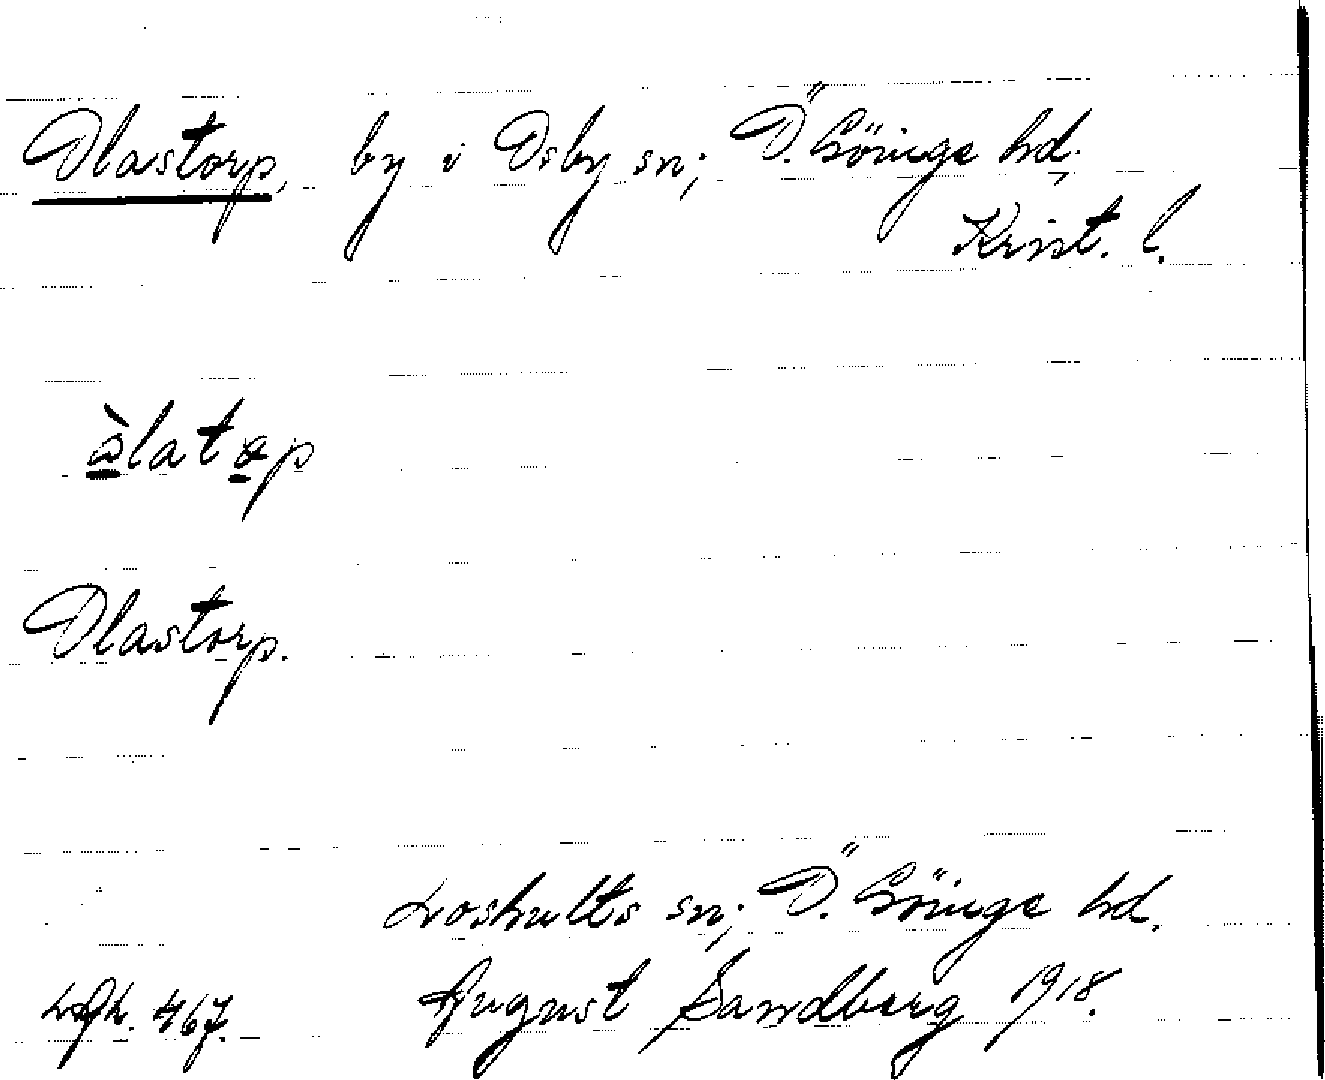 Olastorp, by i Osby sn; Ö. Göinge hd;
Krist. l.
àlatap
Olastorp.
Loshults sn; Ö. Göinge hd.
467. August Sandberg 1918.